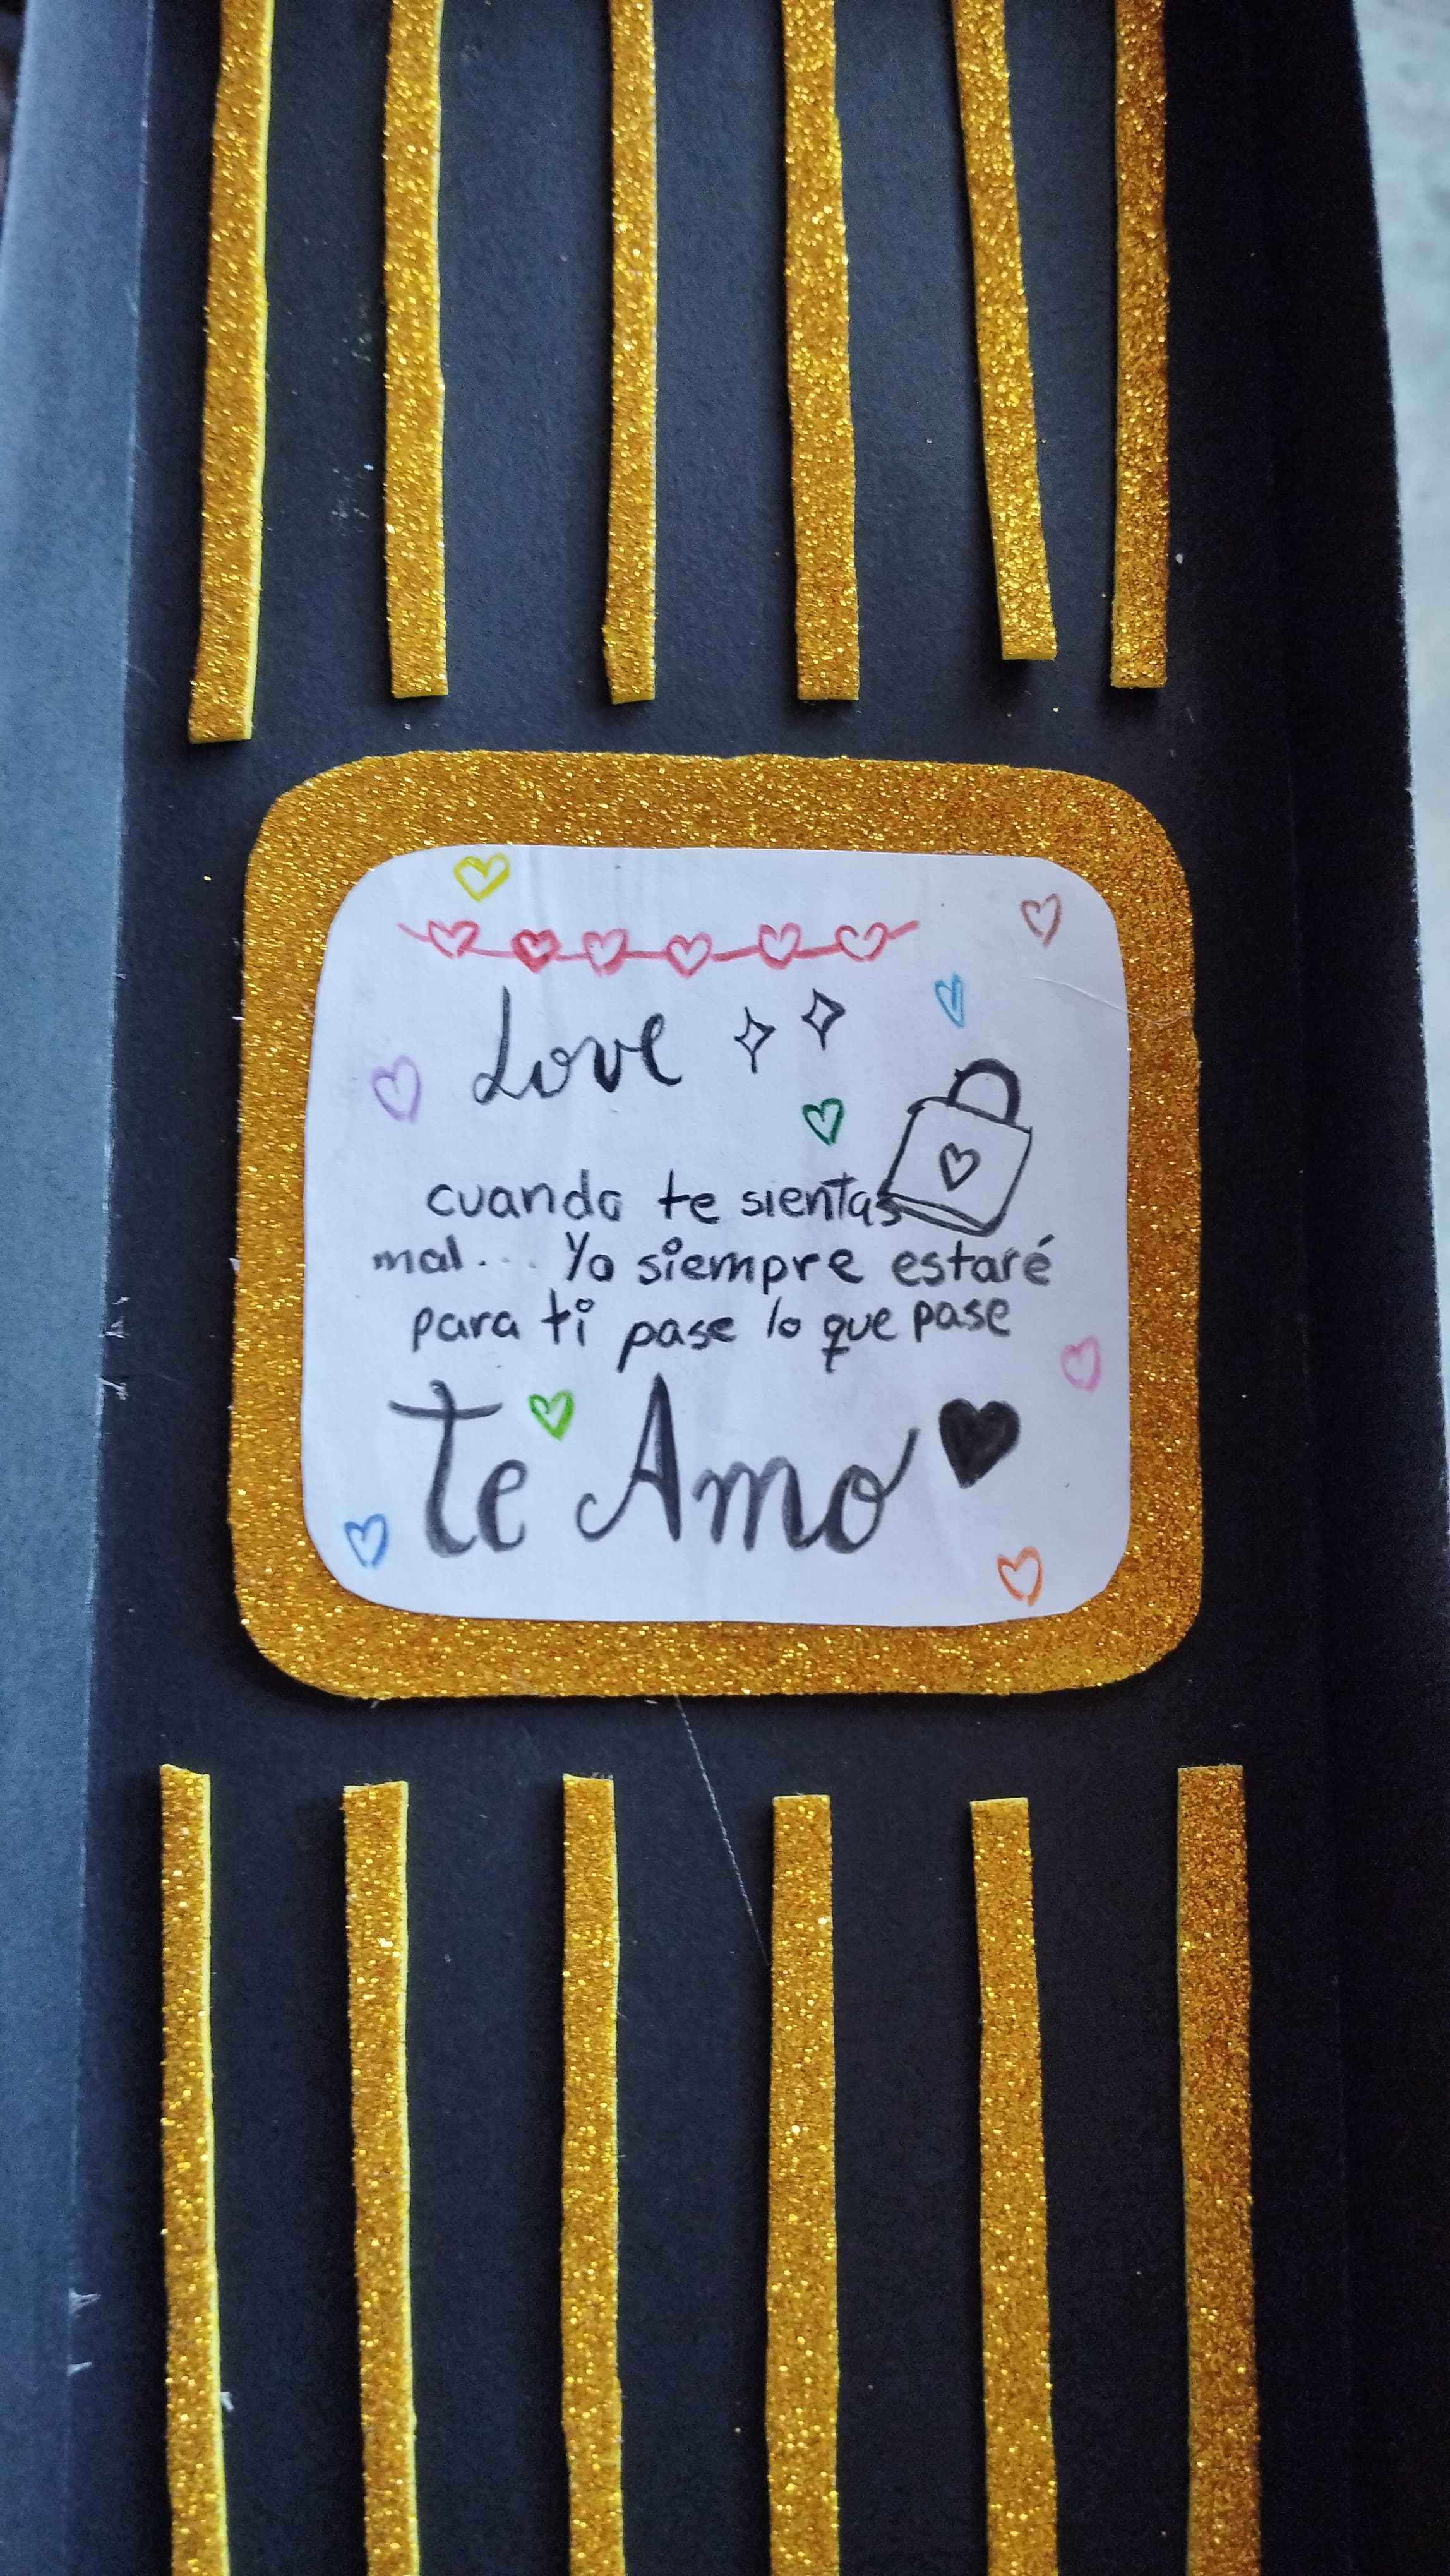 Love
cuando te sientas
mal.... Yo siempre estaré
para ti pase lo que pase
te Amo